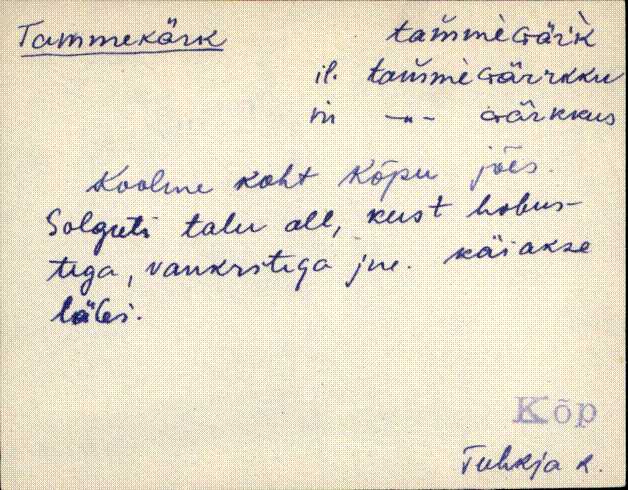 Tammekärk tam̆mèGär̀k
il. tam̆mèGärrkku
in -"- Gärkkus
Koolme koht Kõpu jões.
Solguti talu all, kust hobus-
tega, vankritega jne. käiakse
läbi.
Kõp
Tuhkja k.